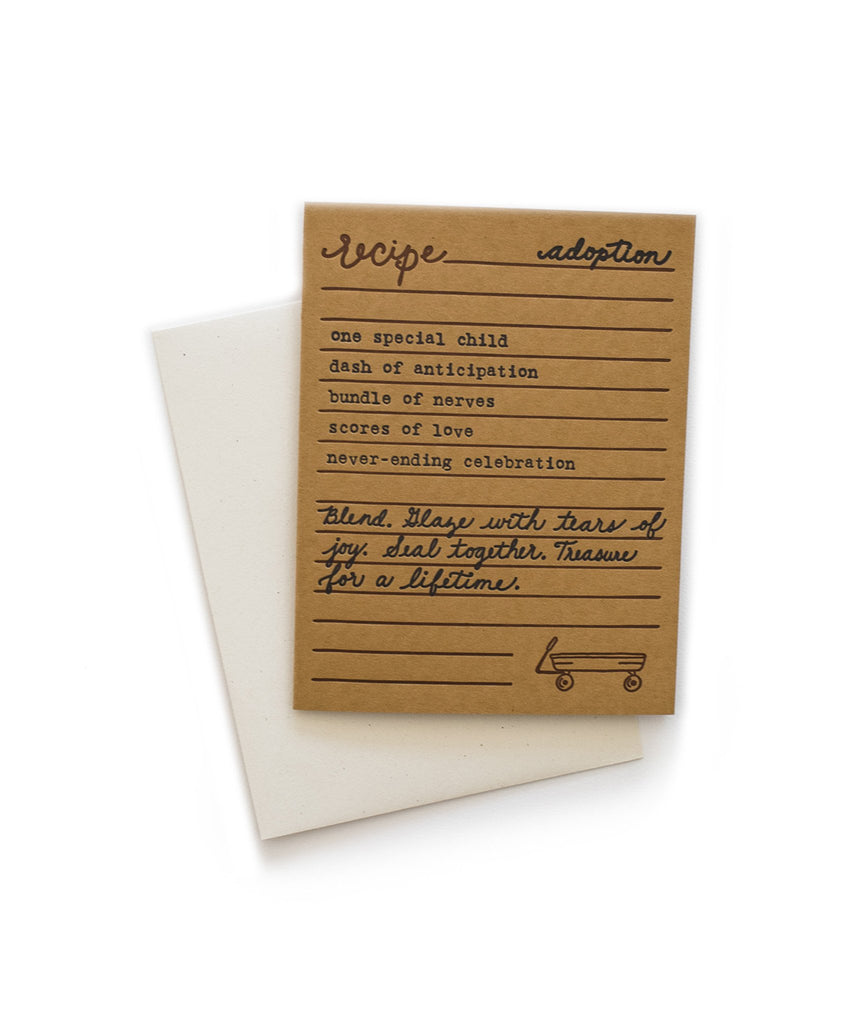 recipe adoption
one special child
dash of anticipation
bundle of nerves
scores of love
never-ending celebration
Blend. Glaze with tears of
joy. Seal together. Treasure
for a lifetime.